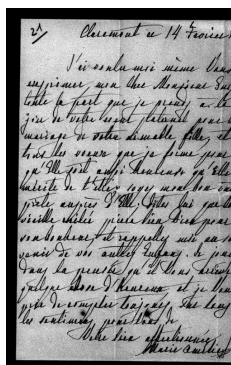 2)
Claremont ce 14 Février
J'ai voulu moi même vous
exprimer, mon cher Monsieur
toute la part que je prends à la
joie de votre
mariage de votre aimable fille, et
tous les voeux que je forme pour
qu'Elle soit aussi heureuse qu'Elle
mérite de l'Etre. soyez mon bon
auprès d'Elle. Dites lui que la
vieille prie bien bien pour
son bonheur, et rappellez moi au sou
venir de vos autres Enfans. Je
dans la pensée qu'il vous
quelque chose d'heureux et je vous
prie de compter toujours sur tous
les sentimens pour vous de
Votre bien affectionnée
Marie Amélie